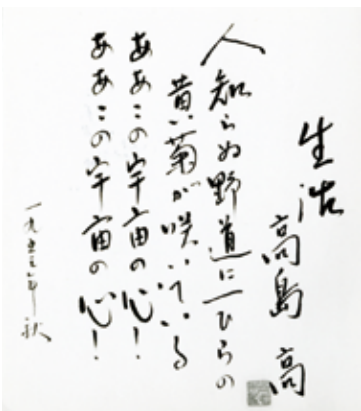 生活
高島 高
人知らぬ野道に一ひらの
黄い菊が咲いている
ああこの宇宙の心!
ああこの宇宙の心!
一九五三年秋